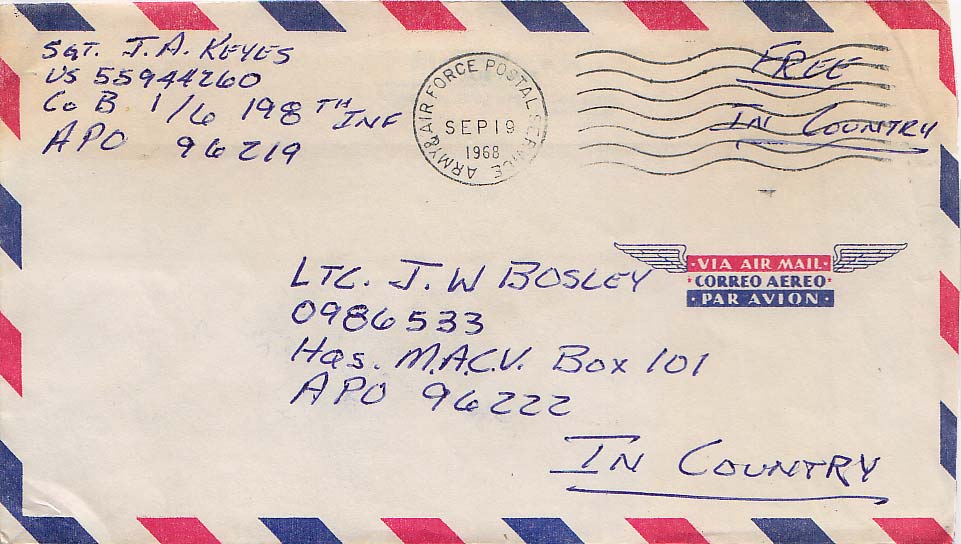 SGT. J. A. KEYES
US 55944260
Co B 1/6 198TH INF
APO 96219
ARMY & AIR FORCE POSTAL SERVICE
SEP 19
1968
FREE
IN COUNTRY
LTC. J. W BOSLEY
0986533
Hqs. M.A.C.V. Box 101
APO 96222
IN COUNTRY
·VIA AIR MAIL·
CORREO AEREO
·PAR AVION·